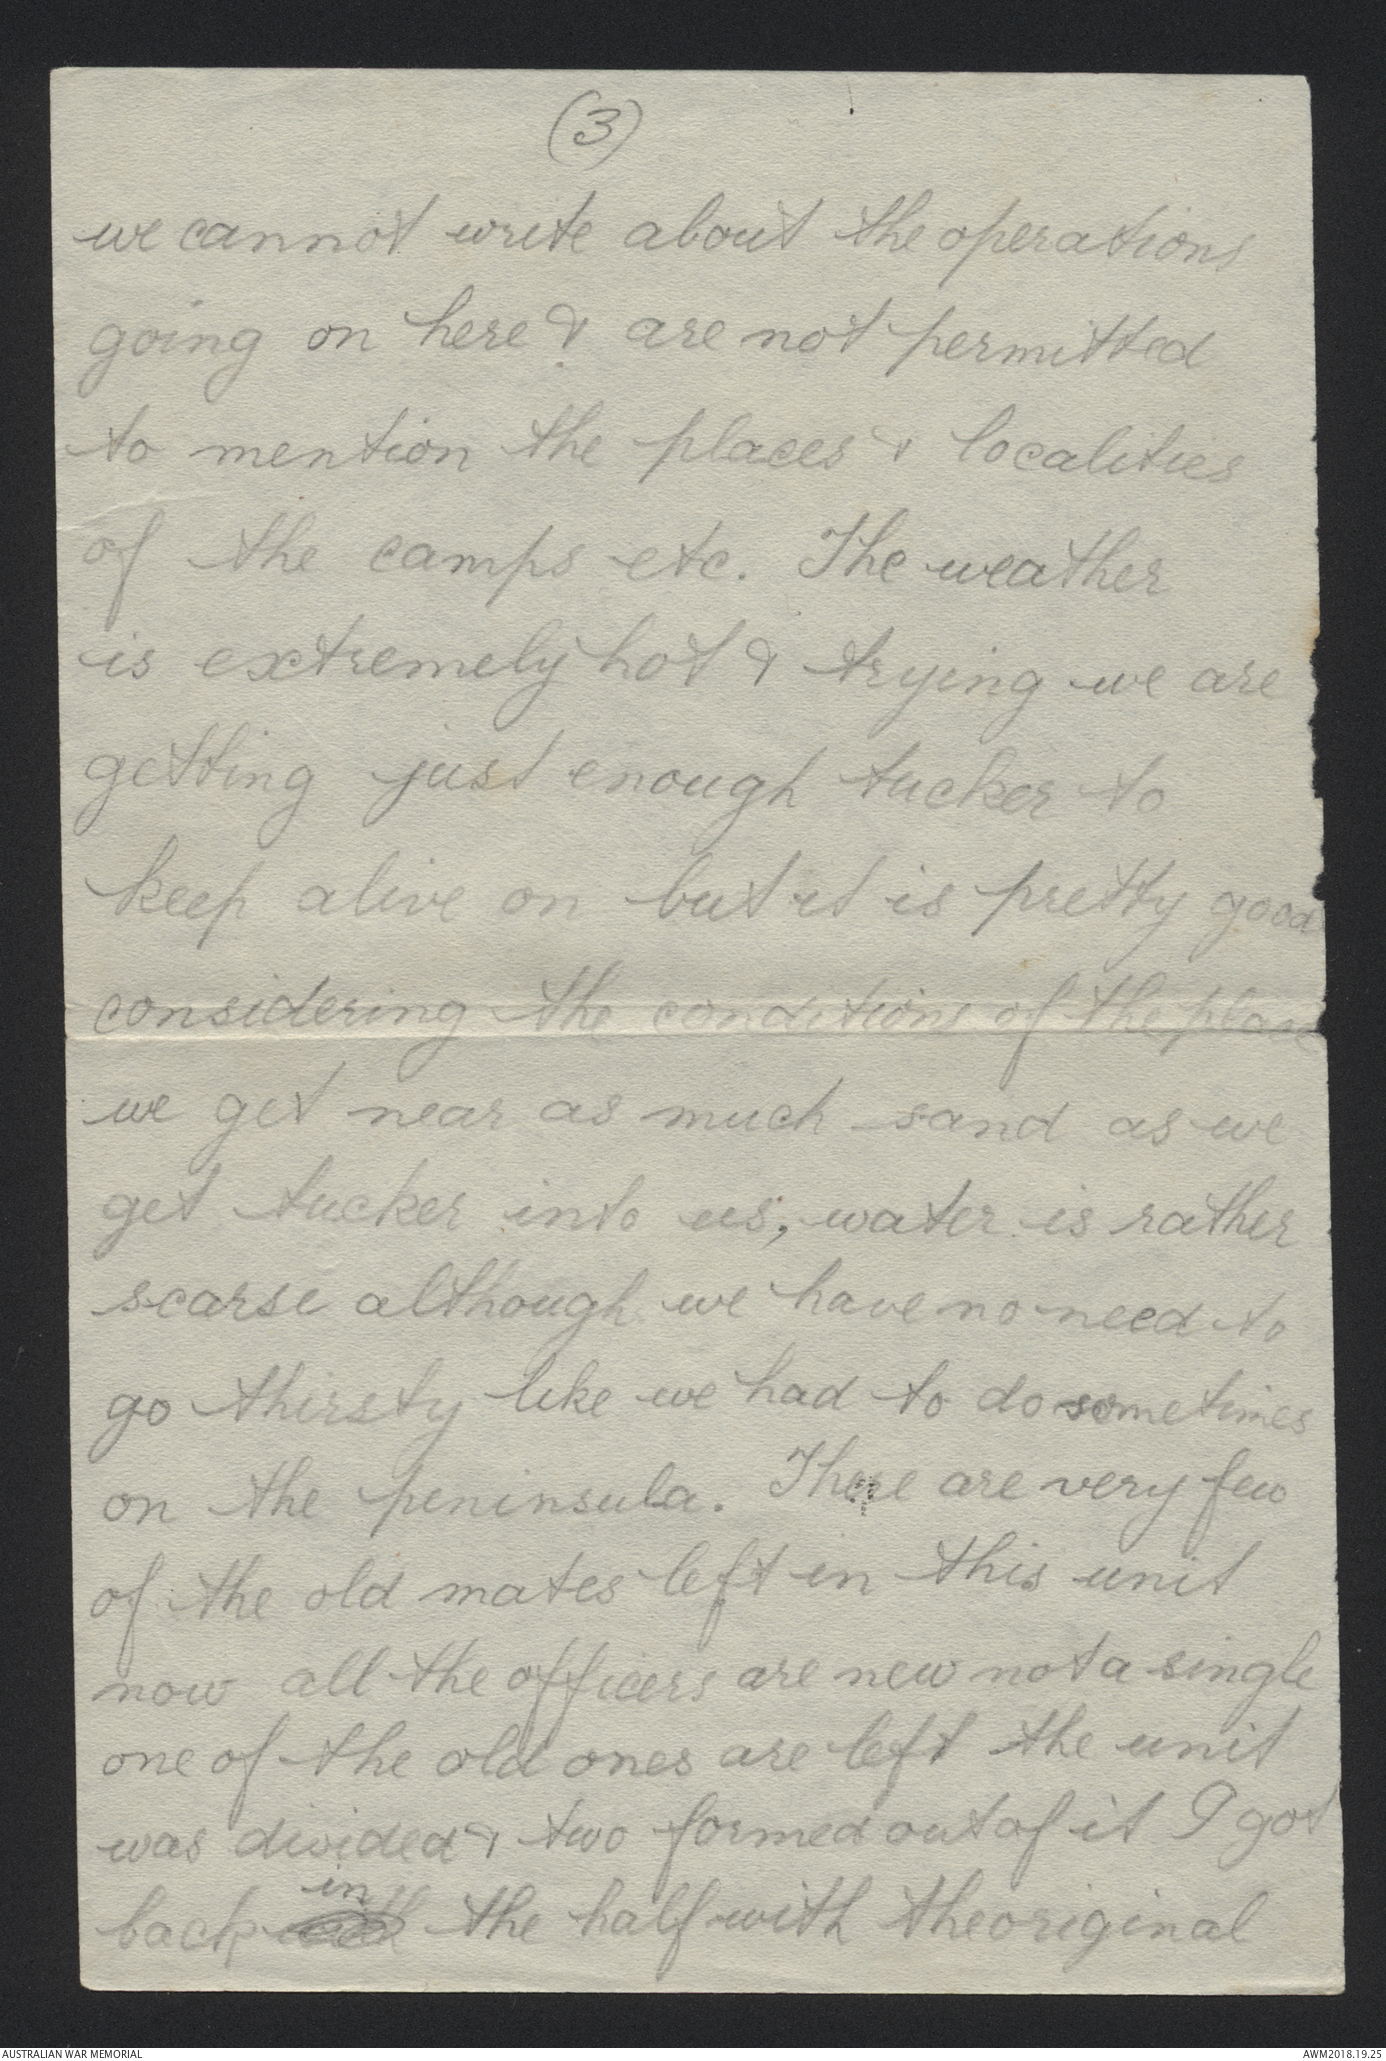 (3)
we cannot write about the operations
going on here & are not permitted
to mention the places & localities
of the camps etc. The weather
is extremely hot & trying we are
getting just enough tucker to
keep alive on but it is pretty good
considering the conditions of the place
we get near as much sand as we
get tucker into us, water is rather
scarse although we have no need to
go thirsty like we had to do sometimes
on the peninsula. There are very few
of the old mates left in this unit
now all the officers are new not a single
one of the old ones are left the unit
was divided & two formed out of it I got
back in the half with the original
AUSTRALIAN WAR MEMORIAL
AWM2018.19.25